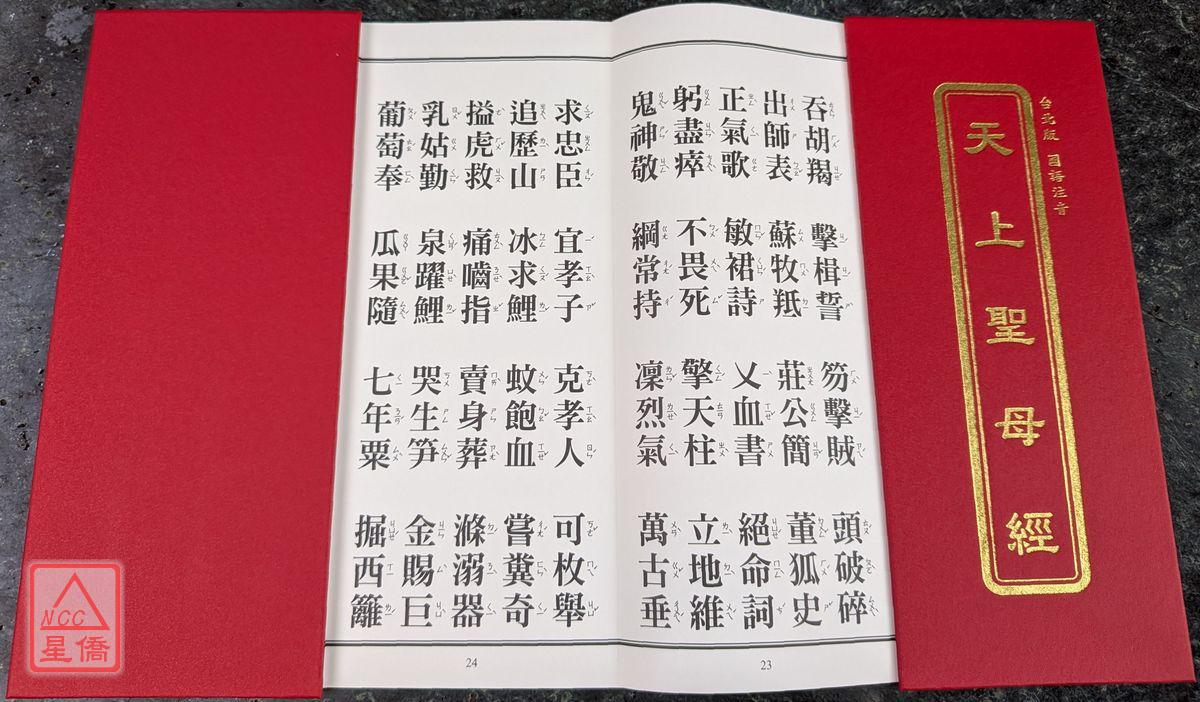 台北版 國語注音
天上聖母經
吞胡羯 擊楫誓 笏擊賊 頭破碎
出師表 蘇牧羝 莊公簡 董狐史
正氣歌 敏裙詩 乂血書 絕命詞
躬盡瘁 不畏死 擎天柱 立地維
鬼神敬 綱常持 凜烈氣 萬古垂
23
求忠臣 宜孝子 克孝人 可枚舉
追歷山 冰求鯉 蚊飽血 嘗糞奇
搤虎救 痛嚙指 賣身葬 滌溺器
乳姑勤 泉躍鯉 哭生笋 金賜巨
葡萄奉 瓜果隨 七年粟 掘西籬
24
NCC
星僑